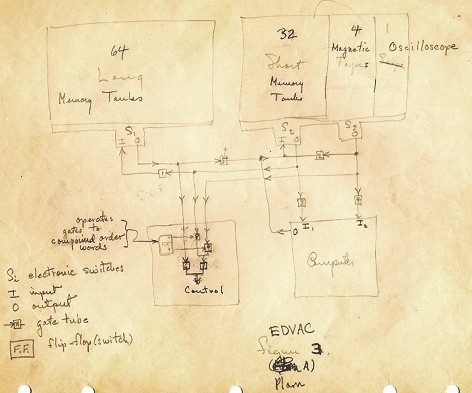 64
Long
Memory Tanks
32
Short
Memory
Tanks
4
Magnetic
Tapes
1
Oscilloscope
S1
I
O
S2
I
O
S3
O
operates
gates to
compound order
words
Control
O
I1
I2
Computer
Si electronic switches
I input
O output
gate tube
F.F. flip-flop (switch)
EDVAC
Figure 3
A)
Plan